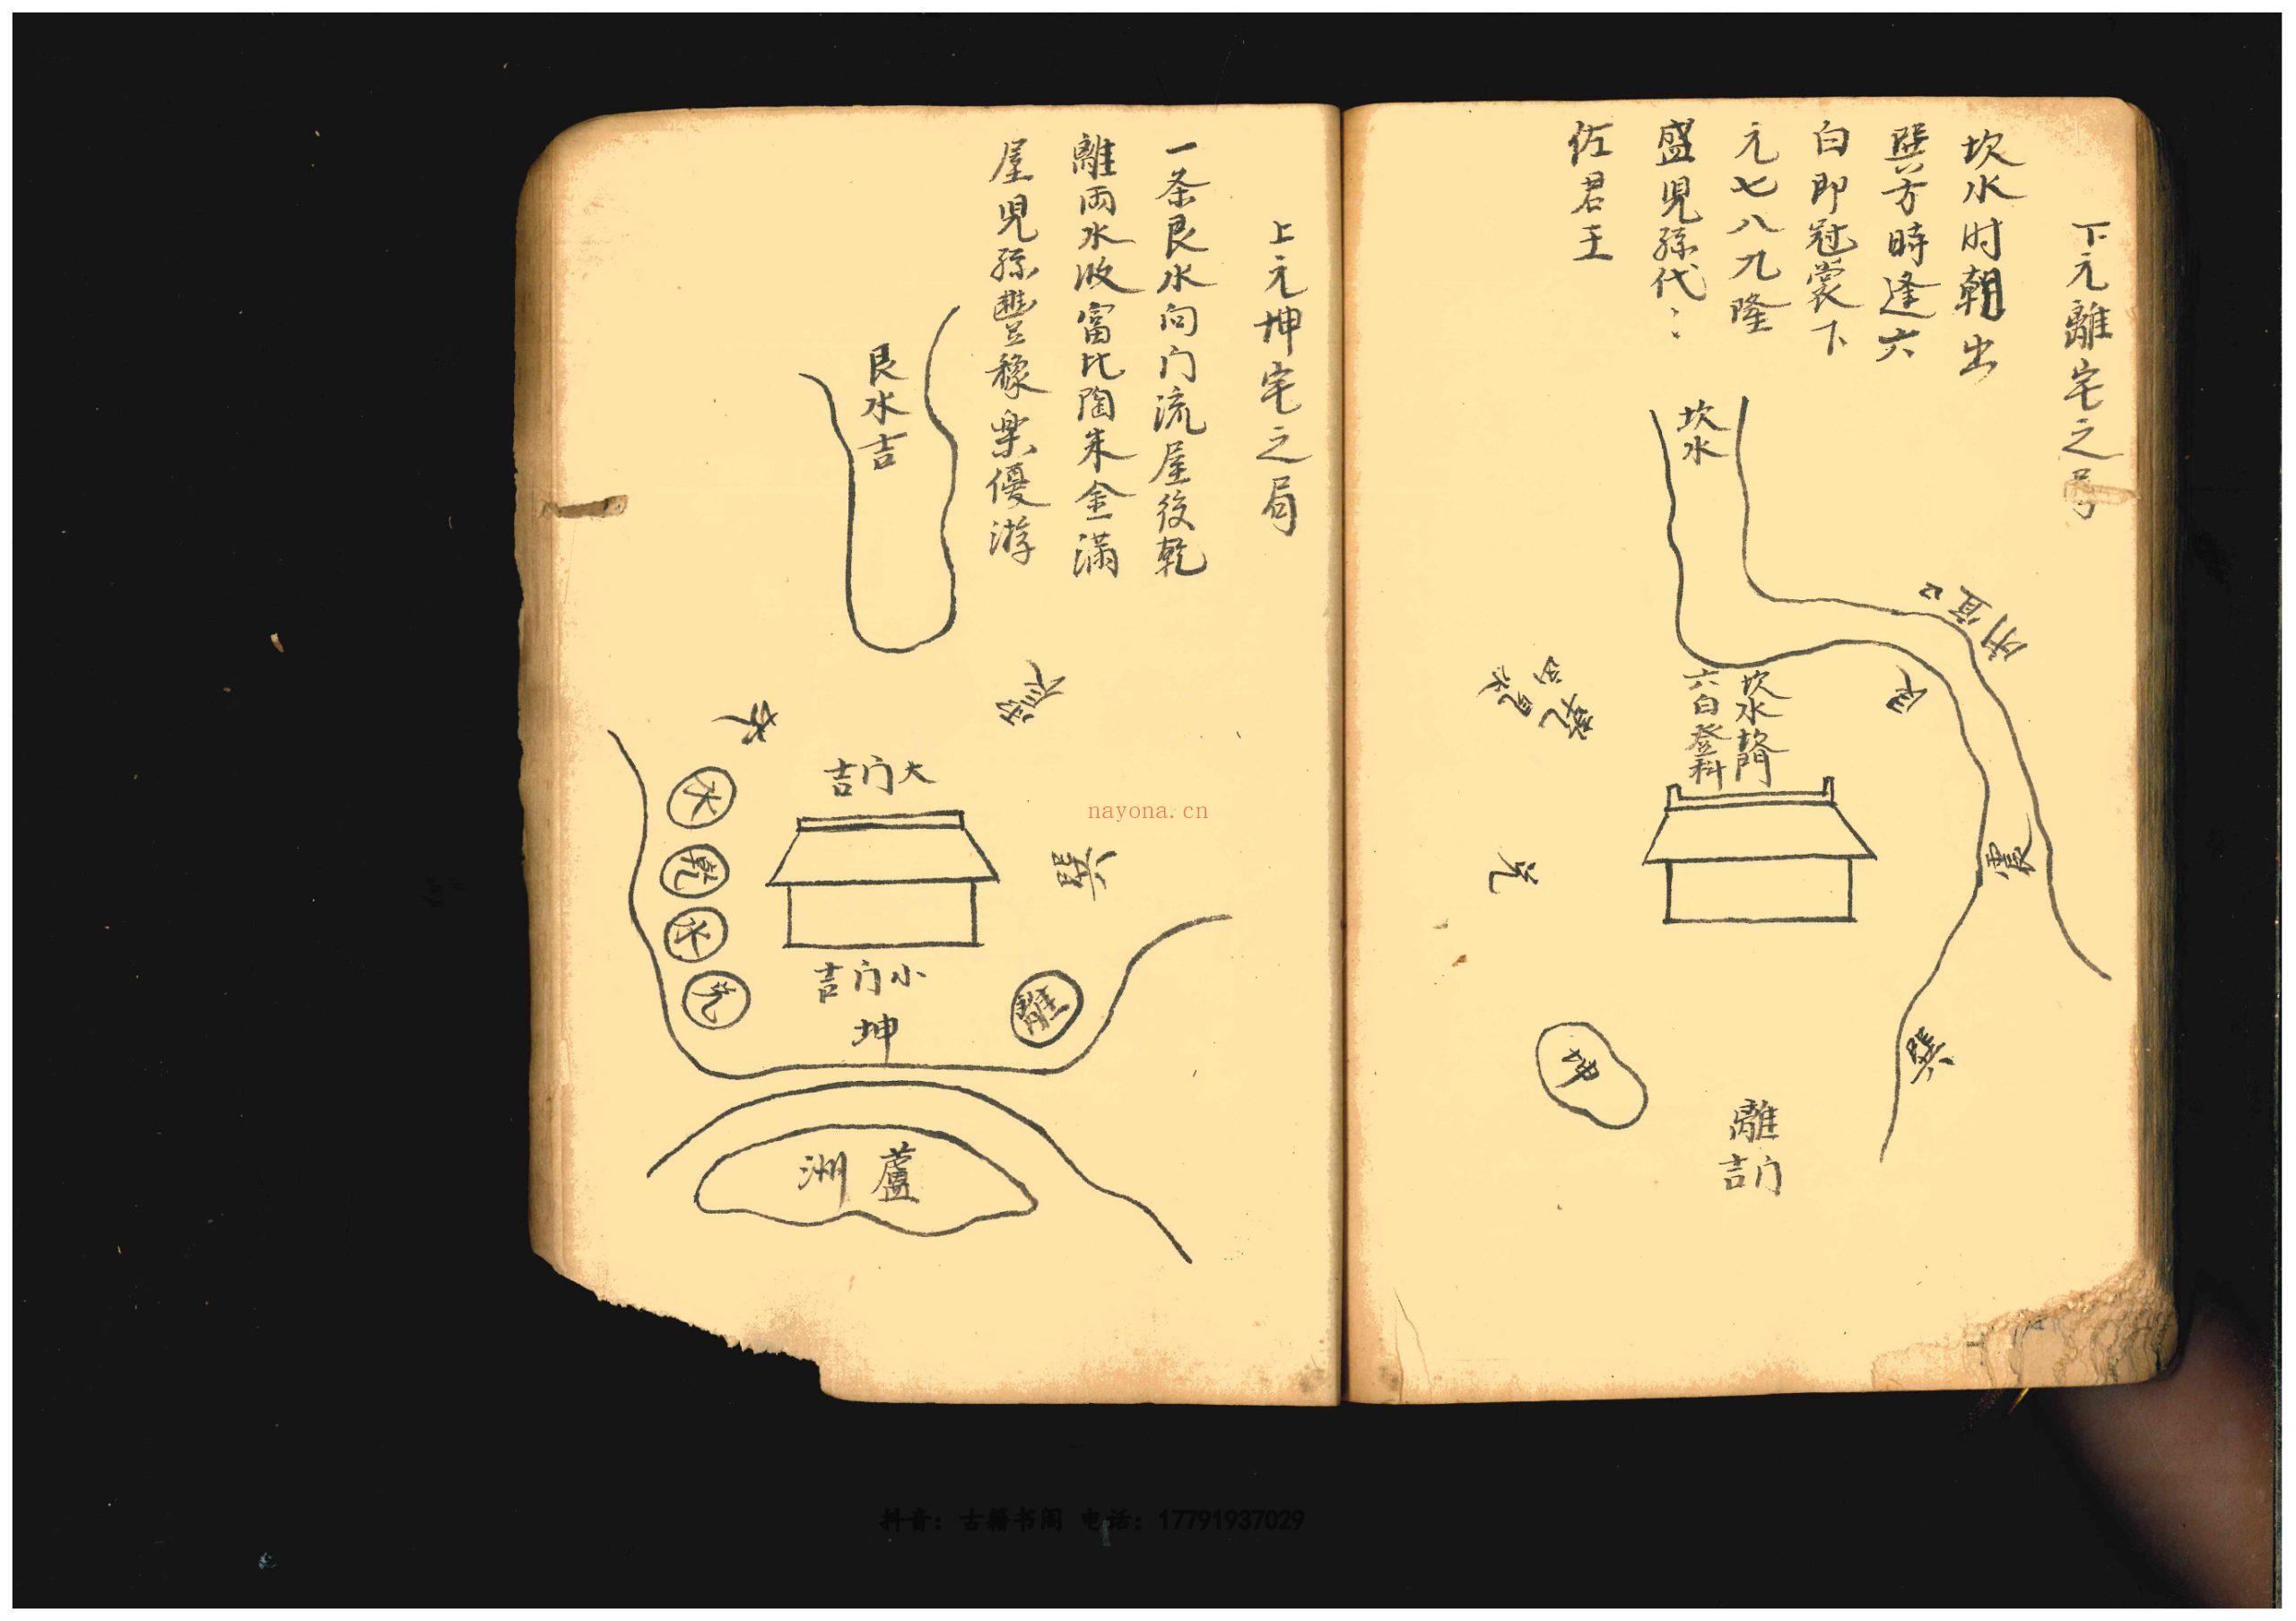 下元離宅之局
坎水时朝出
巽方時逢六
白即冠裳下
元七八九隆
盛児孫代〻
佐君王
坎水
坎水
六白登科
艮
震
巽
兌
乾
離
门吉
上元坤宅之局
一条艮水向门流屋後乾
離両水收富比陶朱金滿
屋児孫豐稼楽優游
艮水吉
坎
震
大门吉
水
乾
水
兌
巽
小门吉
坤
離
蘆洲
nayona.cn
抖音：古籍书阁 电话：17791937029